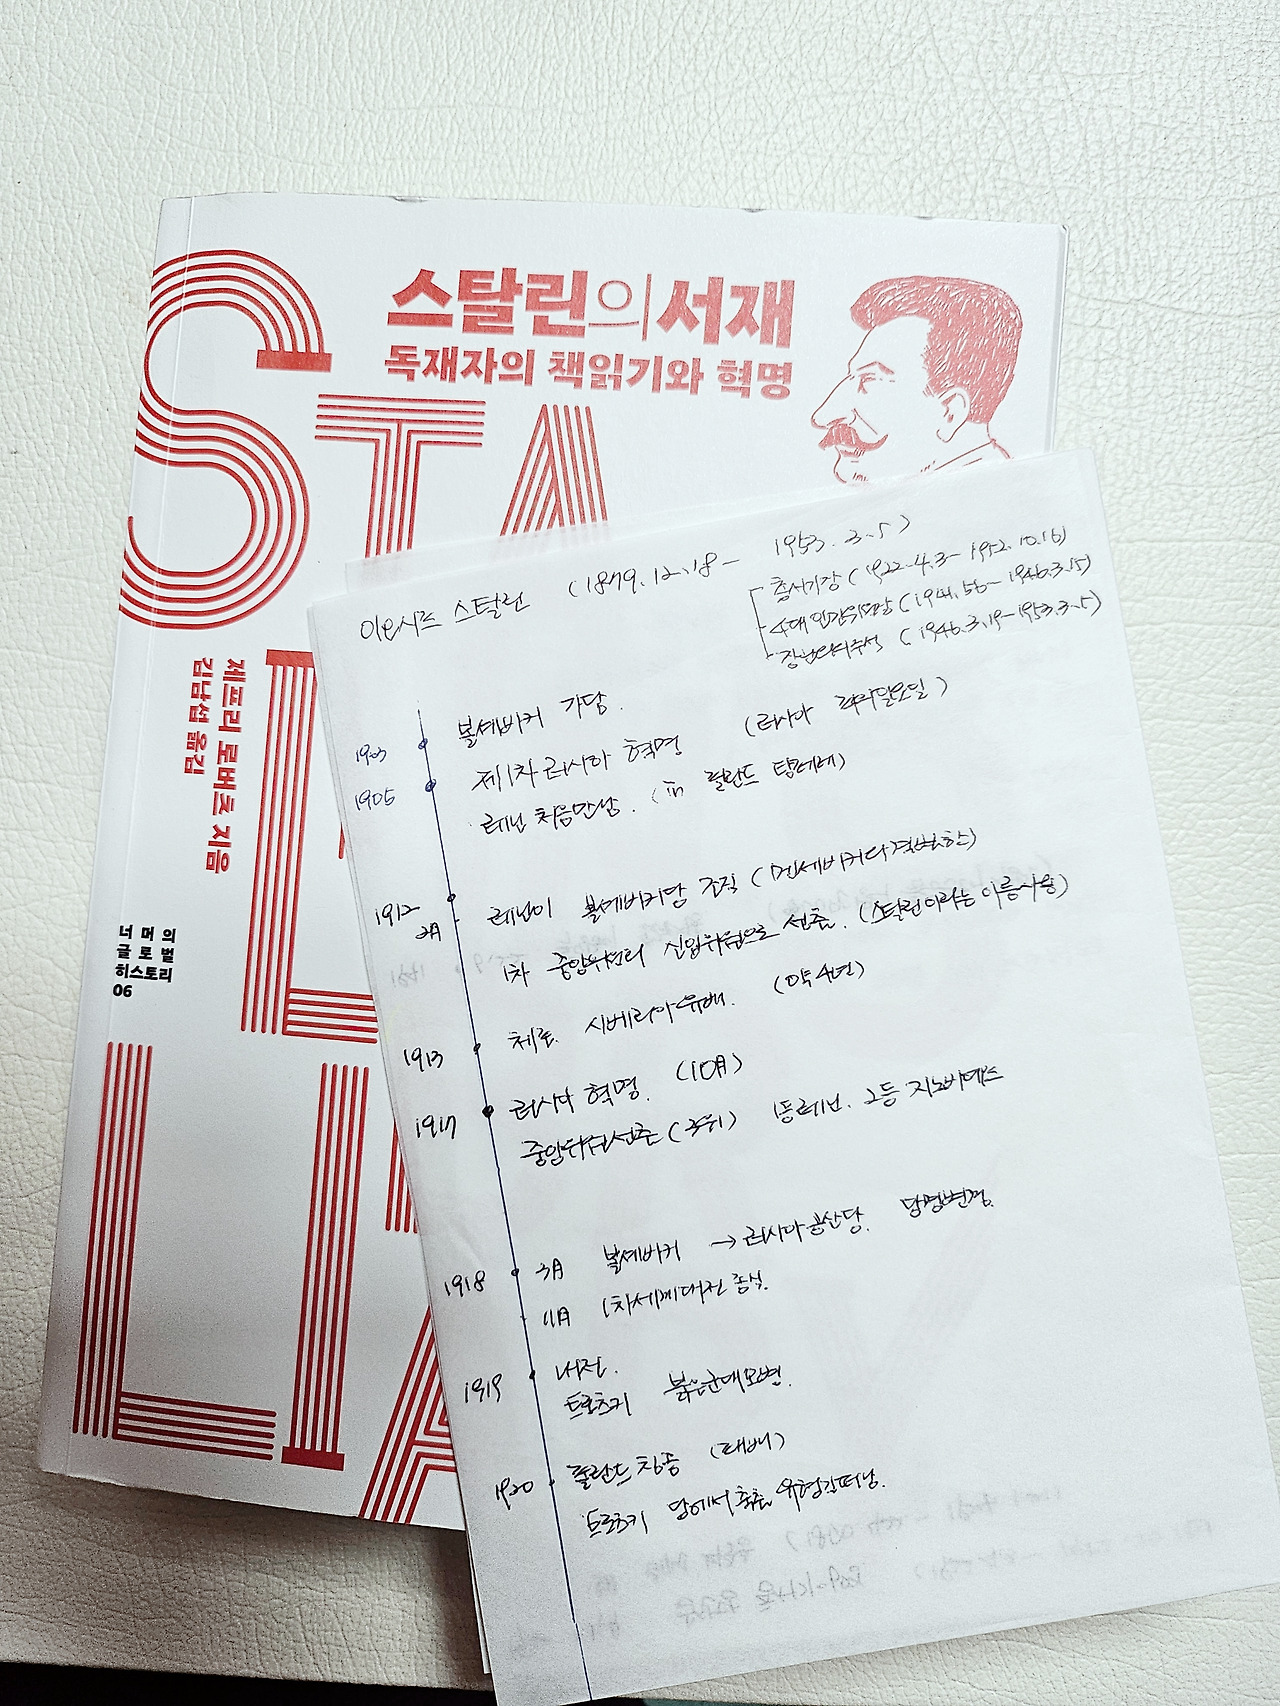 스탈린의 서재
독재자의 책읽기와 혁명
STA
LI
LI
A
제프리 로버츠 지음
김남섭 옮김
너머의
글로벌
히스토리
06
이오시프 스탈린 (1879.12.18 - 1953.3.5)
총서기장 (1922.4.3 - 1952.10.16)
4대 인민위원장 (1941.5.6 - 1946.3.15)
장관회의주석 (1946.3.19 - 1953.3.5)
1903 볼셰비키 가담.
1905 제1차 러시아 혁명 (러시아 피의일요일)
레닌 처음만남. (in 핀란드 탐페레)
1912 레닌이 볼셰비키당 조직 (멘셰비키와 결별)
1차 중앙위원회 신입위원으로 선출. (스탈린이라는 이름사용)
1913 체포. 시베리아유배. (약 4년)
1917 러시아 혁명. (10月)
중앙위원선출 (3위) 1등레닌. 2등 지노비예프
1918 3月 볼셰비키 → 러시아공산당. 당명변경.
11月 1차세계대전 종식.
1919 내전.
트로츠키 붉은군대
1920 폴란드 침공 (패배)
트로츠키 당에서 축출